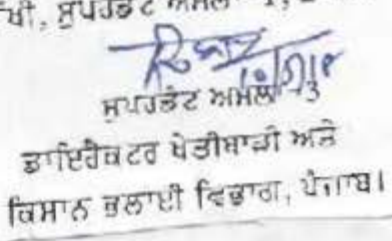 ਸੁਪਰਡੰਟ ਅਮਲਾ
ਸੁਪਰਡੰਟ ਅਮਲਾ 3
ਡਾਇਰੈਕਟਰ ਖੇਤੀਬਾੜੀ ਅਤੇ
ਕਿਸਾਨ ਭਲਾਈ ਵਿਭਾਗ, ਪੰਜਾਬ।